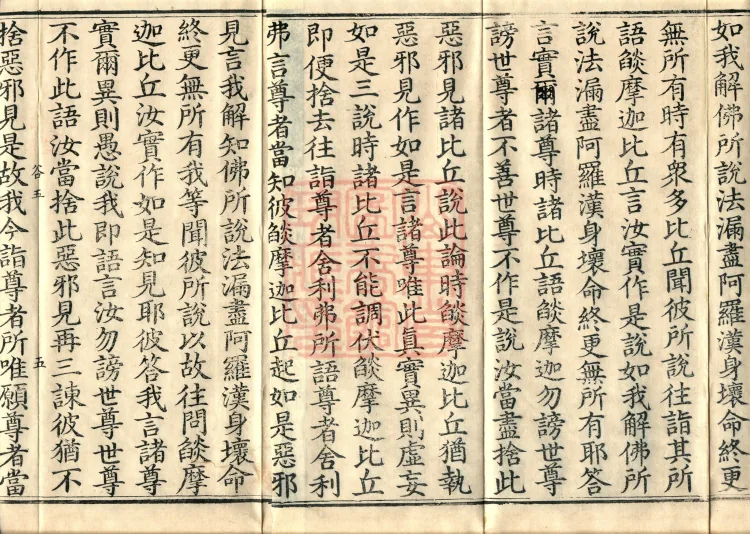 如我解佛所說法漏盡阿羅漢身壞命終更
無所有時有衆多比丘聞彼所說往詣其所
語燄摩迦比丘言汝實作是說如我解佛所
說法漏盡阿羅漢身壞命終更無所有耶荅
言實爾諸尊時諸比丘語燄摩迦勿謗世尊
謗世尊者不善世尊不作是說汝當盡捨此
惡邪見諸比丘說此論時燄摩迦比丘猶執
惡邪見作如是言諸尊唯此眞實異則虛妄
如是三說時諸比丘不能調伏燄摩迦比丘
即便捨去往詣尊者舍利弗所語尊者舍利
弗言尊者當知彼燄摩迦比丘起如是惡邪
見言我解知佛所說法漏盡阿羅漢身壞命
終更無所有我等聞彼所說以故往問燄摩
迦比丘汝實作如是知見耶彼荅我言諸尊
實爾異則愚說我即語言汝勿謗世尊世尊
不作此語汝當捨此惡邪見再三諫彼猶不
谷五 五
捨惡邪見是故我今詣尊者所唯願尊者當